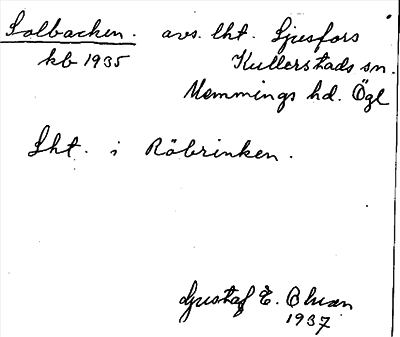 Solbacken. avs. lht. Ljusfors
kb 1935 Kullerstads sn.
Memmings hd. Ögl
Lht. i Röbrinken.
Gustaf E. Ohman
1937